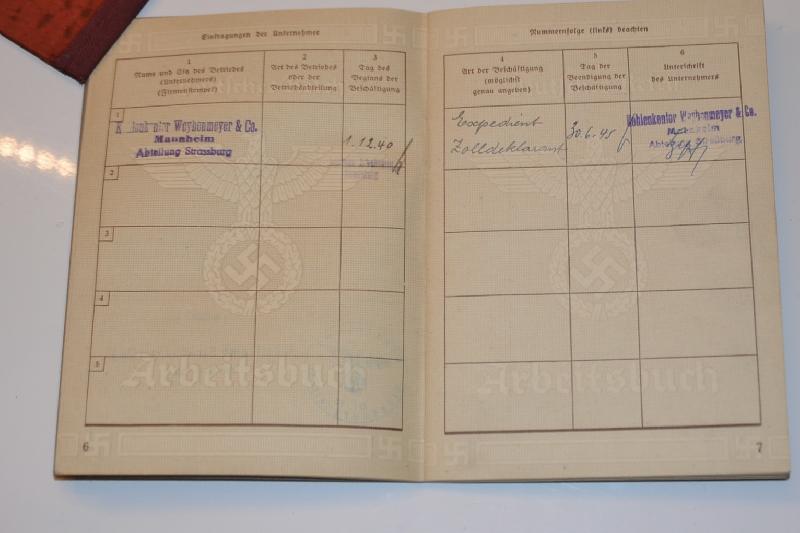 Eintragungen der Unternehmer
1
Name und Sitz des Betriebes
(Unternehmers)
(Firmenstempel)
2
Art des Betriebes
oder der
Betriebsabteilung
3
Tag des
Beginns der
Beschäftigung
1
Weyhenmeyer & Co.
Mannheim
Abteilung Strassburg
1.12.40
2
3
4
5
Arbeitsbuch
6
Nummernfolge (links) beachten
4
Art der Beschäftigung
(möglichst
genau angeben)
5
Tag der
Beendigung der
Beschäftigung
6
Unterschrift
des Unternehmers
Expedient
Zolldeklarant
30.6.45
Kohlenkontor Weyhenmeyer & Co.
Mannheim
Abteilung Straßburg
Arbeitsbuch
7